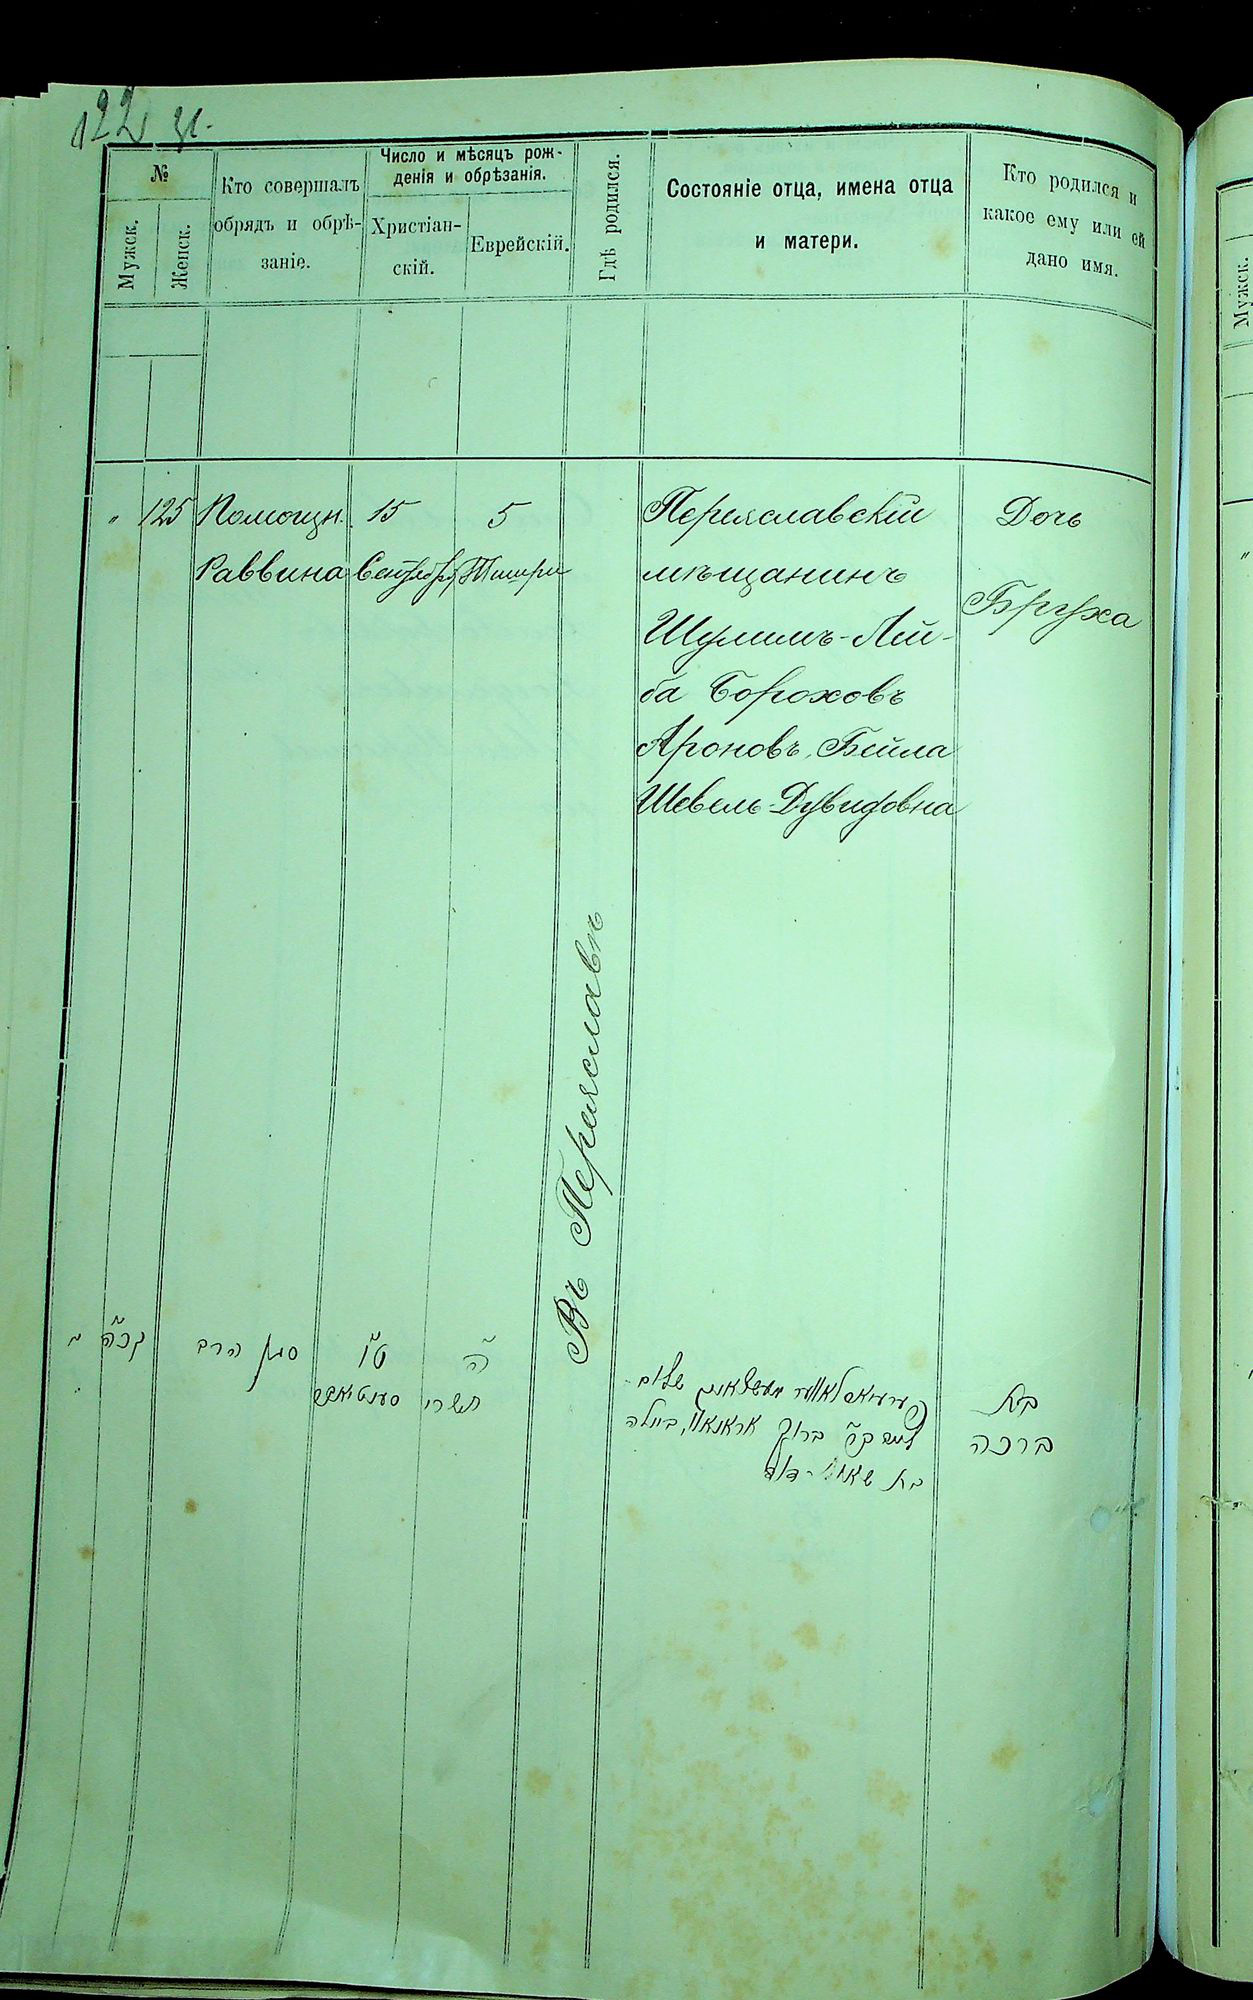 122
№
Мужск.
Женск.
Кто совершалъ
обрядъ и обрѣ-
заніе.
Число и мѣсяцъ рож-
денія и обрѣзанія.
Христіан-
скій.
Еврейскій.
Гдѣ родился.
Состояніе отца, имена отца
и матери.
Кто родился и
какое ему или ей
дано имя.
"
125
Помощн.
Раввина
15
Сентября
5
Тишри
Въ Переяславѣ
Переяславскій
мѣщанинъ
Шулимъ-Лей-
ба Бороховъ
Ароновъ, Бейла
Шевель-Дувидовна
Дочь
Бруха
קכ"ה
סגן הרב
ט"ו
סענטיאבר
ה"
תשרי
שלום
ברוך אראנאוו, ביילה
בת
בת
ברכה
Мужск.
"